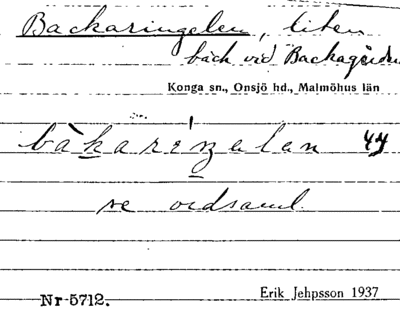 Backaringelen, liten
bäck vid Backagården
Konga sn., Onsjö hd., Malmöhus län
bàkariŋelen 44
se ordsaml.
Nr 5712.
Erik Jehpsson 1937